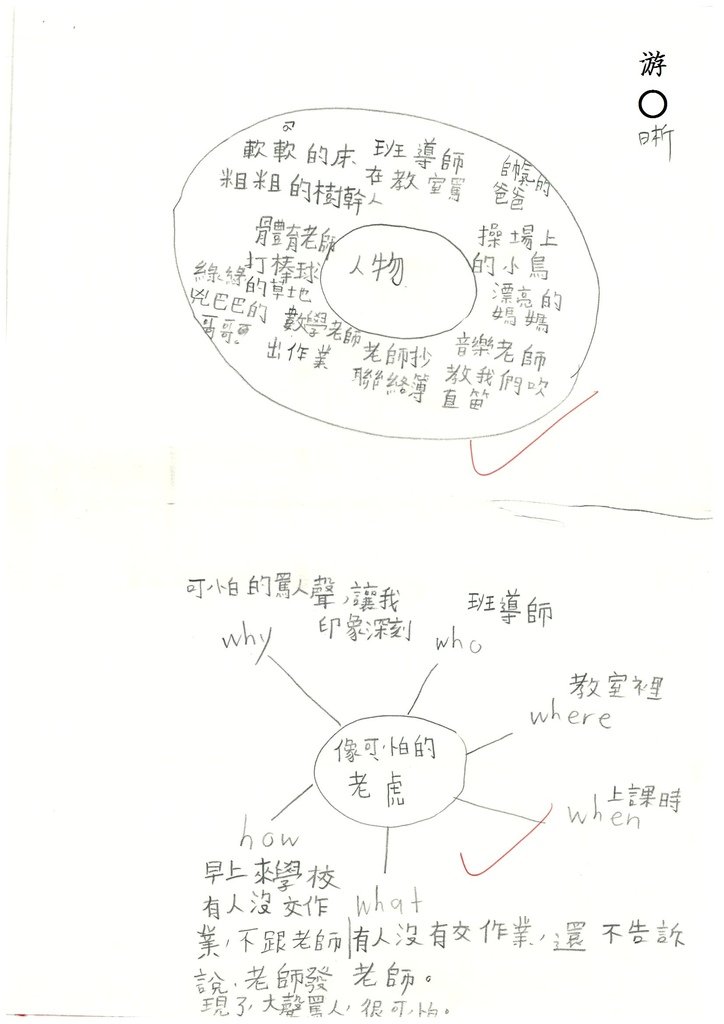 游
○
日析
軟軟的床
粗粗的樹幹
班導師
在教室罵
人
帥氣的
爸爸
操場上
的小鳥
漂亮的
媽媽
音樂老師
教我們吹
直笛
老師抄
聯絡簿
數學老師
出作業
體育老師
打棒球
綠綠
的草地
兇巴巴的
哥哥。
人物
可怕的罵人聲,讓我
印象深刻
why
班導師
who
教室裡
where
上課時
when
像可怕的
老虎
how
早上來學校
有人沒交作
業,不跟老師
說,老師發
現了,大聲罵人,很可怕。
what
有人沒有交作業,還不告訴
老師。